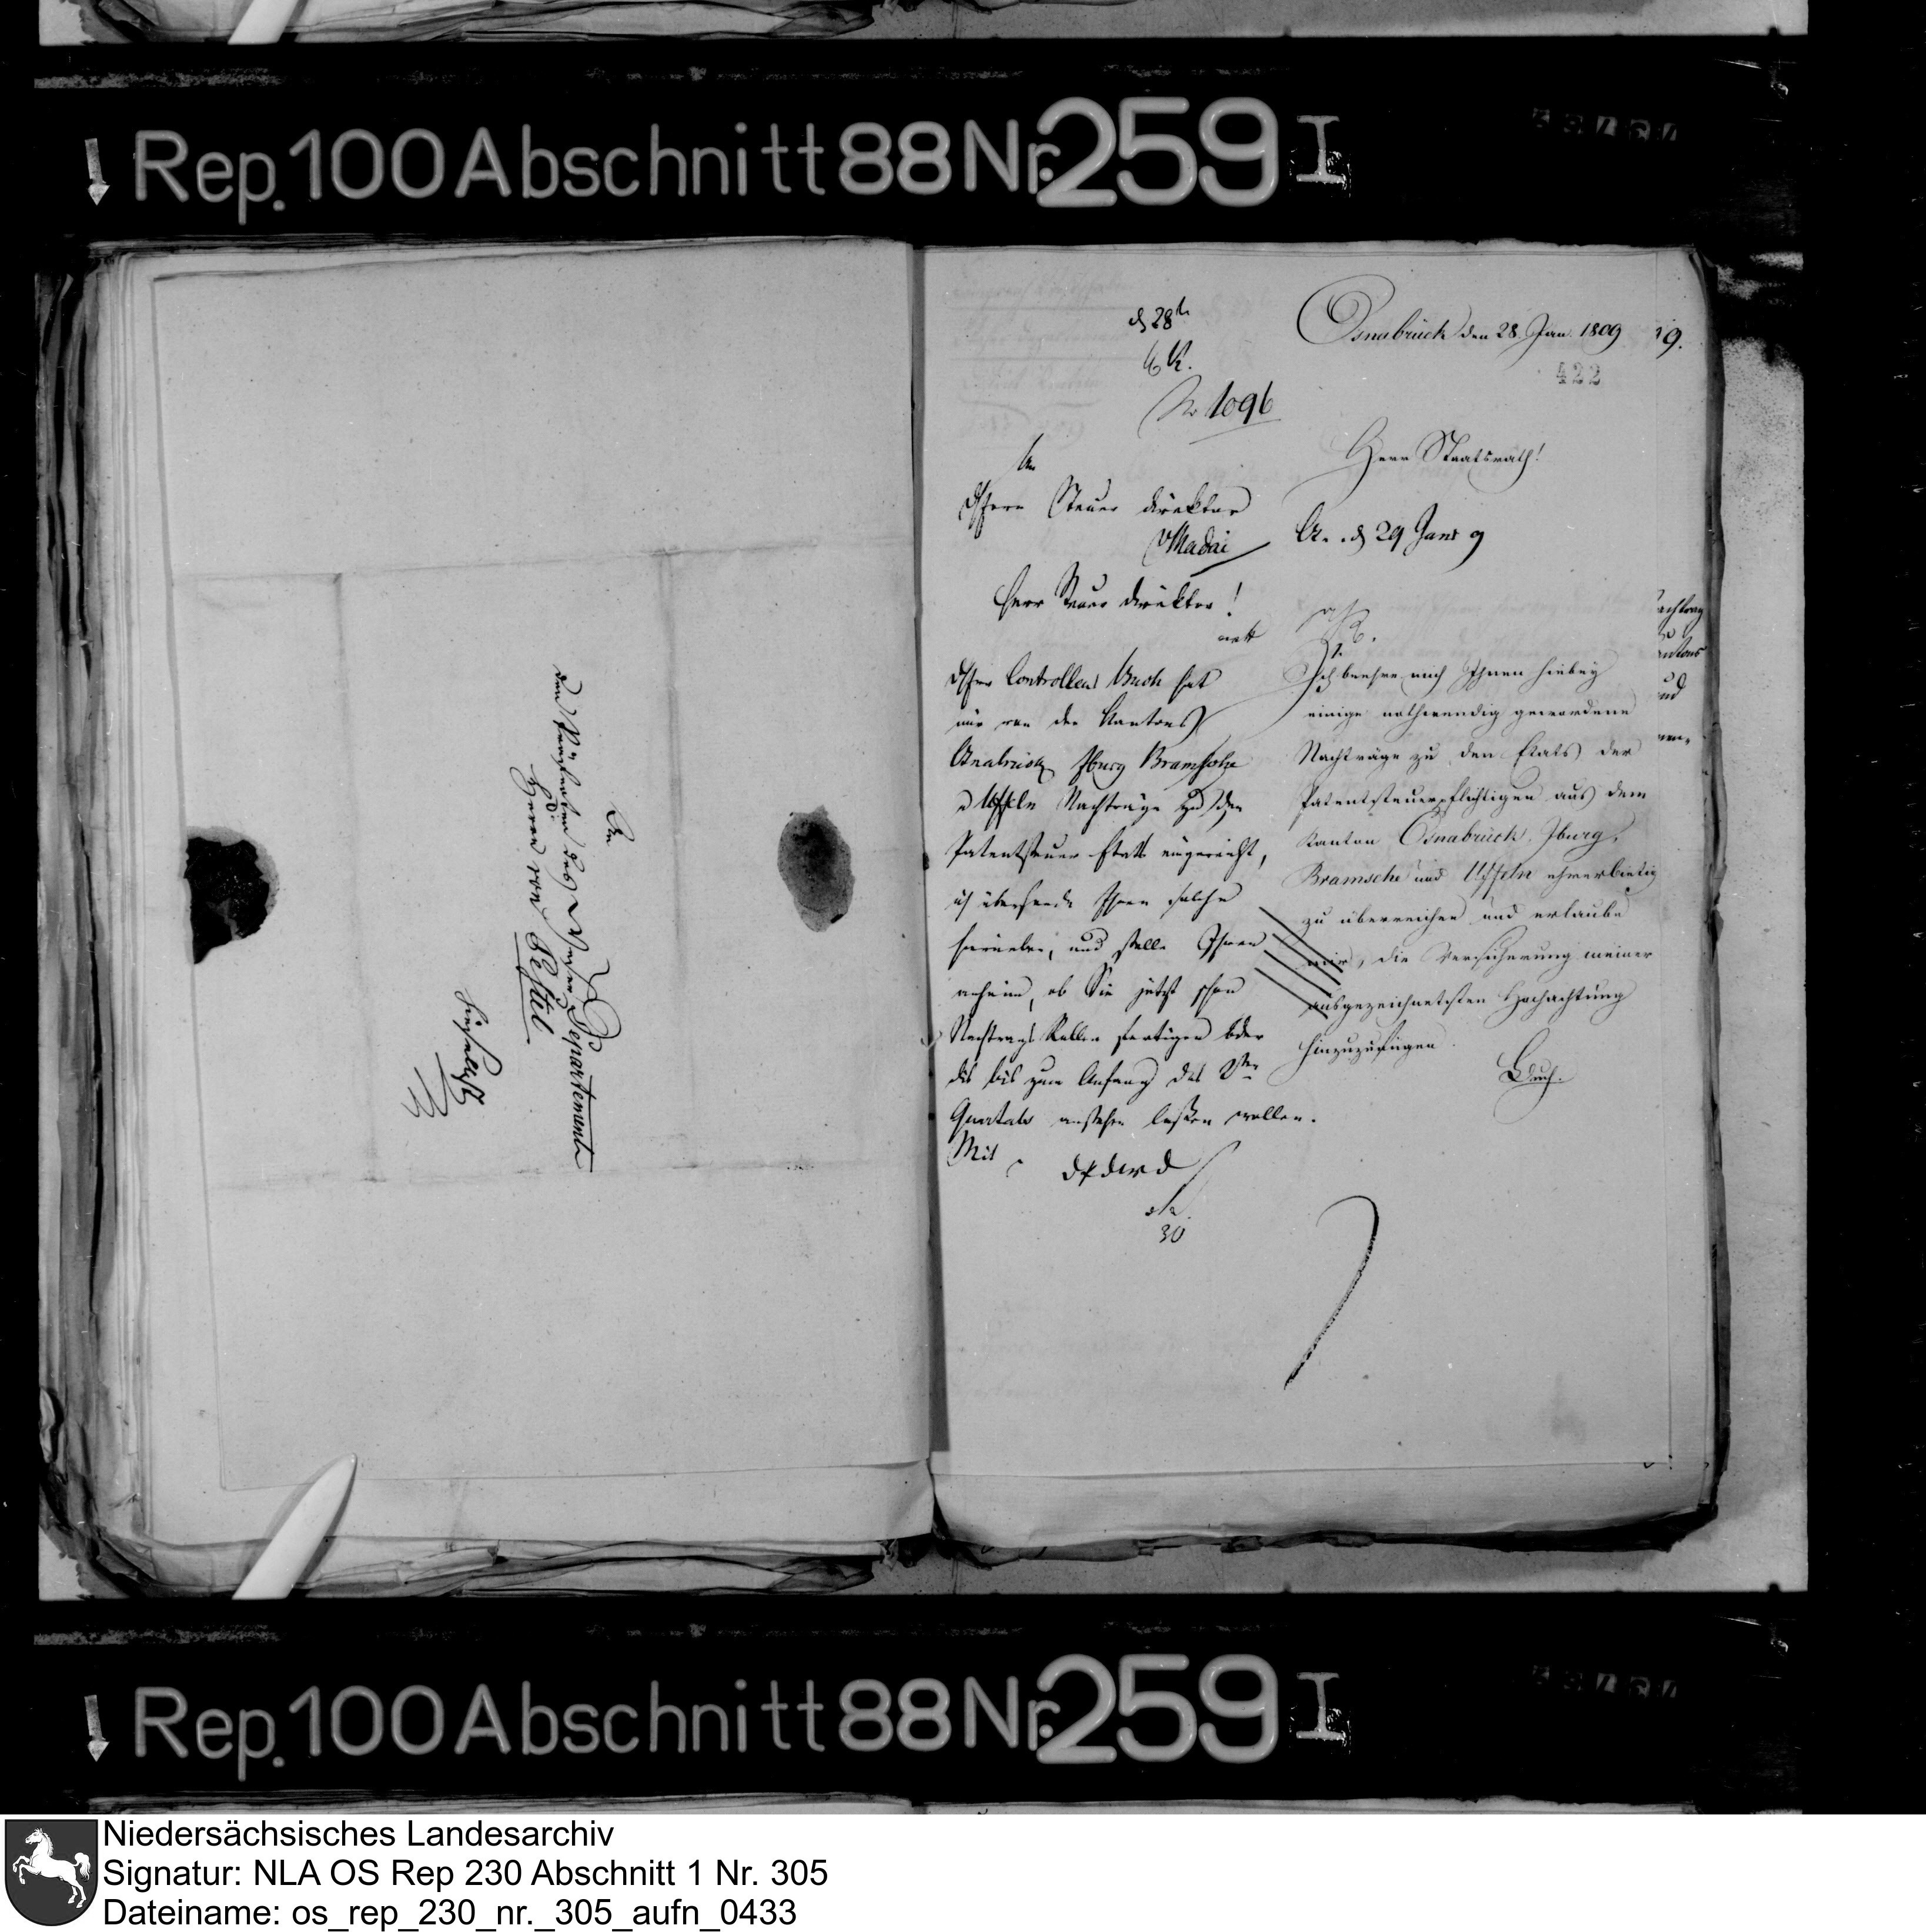 Rep. 100 Abschnitt 88 Nr. 259 I
An
den Präfecten des Weser Departements
Herrn von Pestel
hieselbst
d 28t
Nr 1096
An
Herrn Steuer direktor
v Madai
Herr Steuer direktor!
Herr Controlleur Buch hat
mir von den Kantons
Osnabrück Iburg Bramsche
u Uffeln Nachträge zu den
Patentsteuer Etats eingereicht,
ich übersende Ihnen solche
hieneben, und stelle Ihnen
anheim, ob Sie jetzt schon
Nachtrags Rollen fertigen oder
dis bis zum Anfang des 2ten
Quartals anstehen lassen wollen.
Mit
30
Osnabrück den 28. Jan. 1809
422
Herr Staatsrath!
d 29 Janr 9
Ich beehre mich Ihnen hiebey
einige nothwendig gewordene
Nachträge zu den Etats der
Patentsteuerpflichtigen aus dem
Kanton Osnabrück, Iburg,
Bramsche und Uffeln ehrerbietig
zu überreichen und erlaube
mir, die Versicherung meiner
ausgezeichnetsten Hochachtung
hinzuzufügen.
Buch.
9.
Rep. 100 Abschnitt 88 Nr. 259 I
Niedersächsisches Landesarchiv
Signatur: NLA OS Rep 230 Abschnitt 1 Nr. 305
Dateiname: os_rep_230_nr._305_aufn_0433